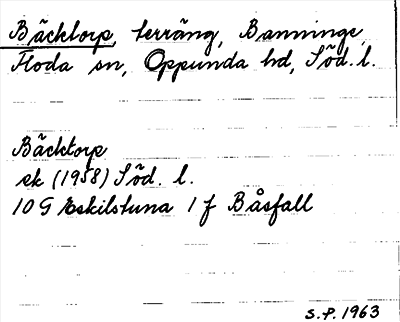 Bäcktorp, terräng, Banninge,
Floda sn, Oppunda hd, Söd. l.
Bäcktorp
ek (1958) Söd. l.
10 G Eskilstuna 1 f Båsfall
S.P. 1963